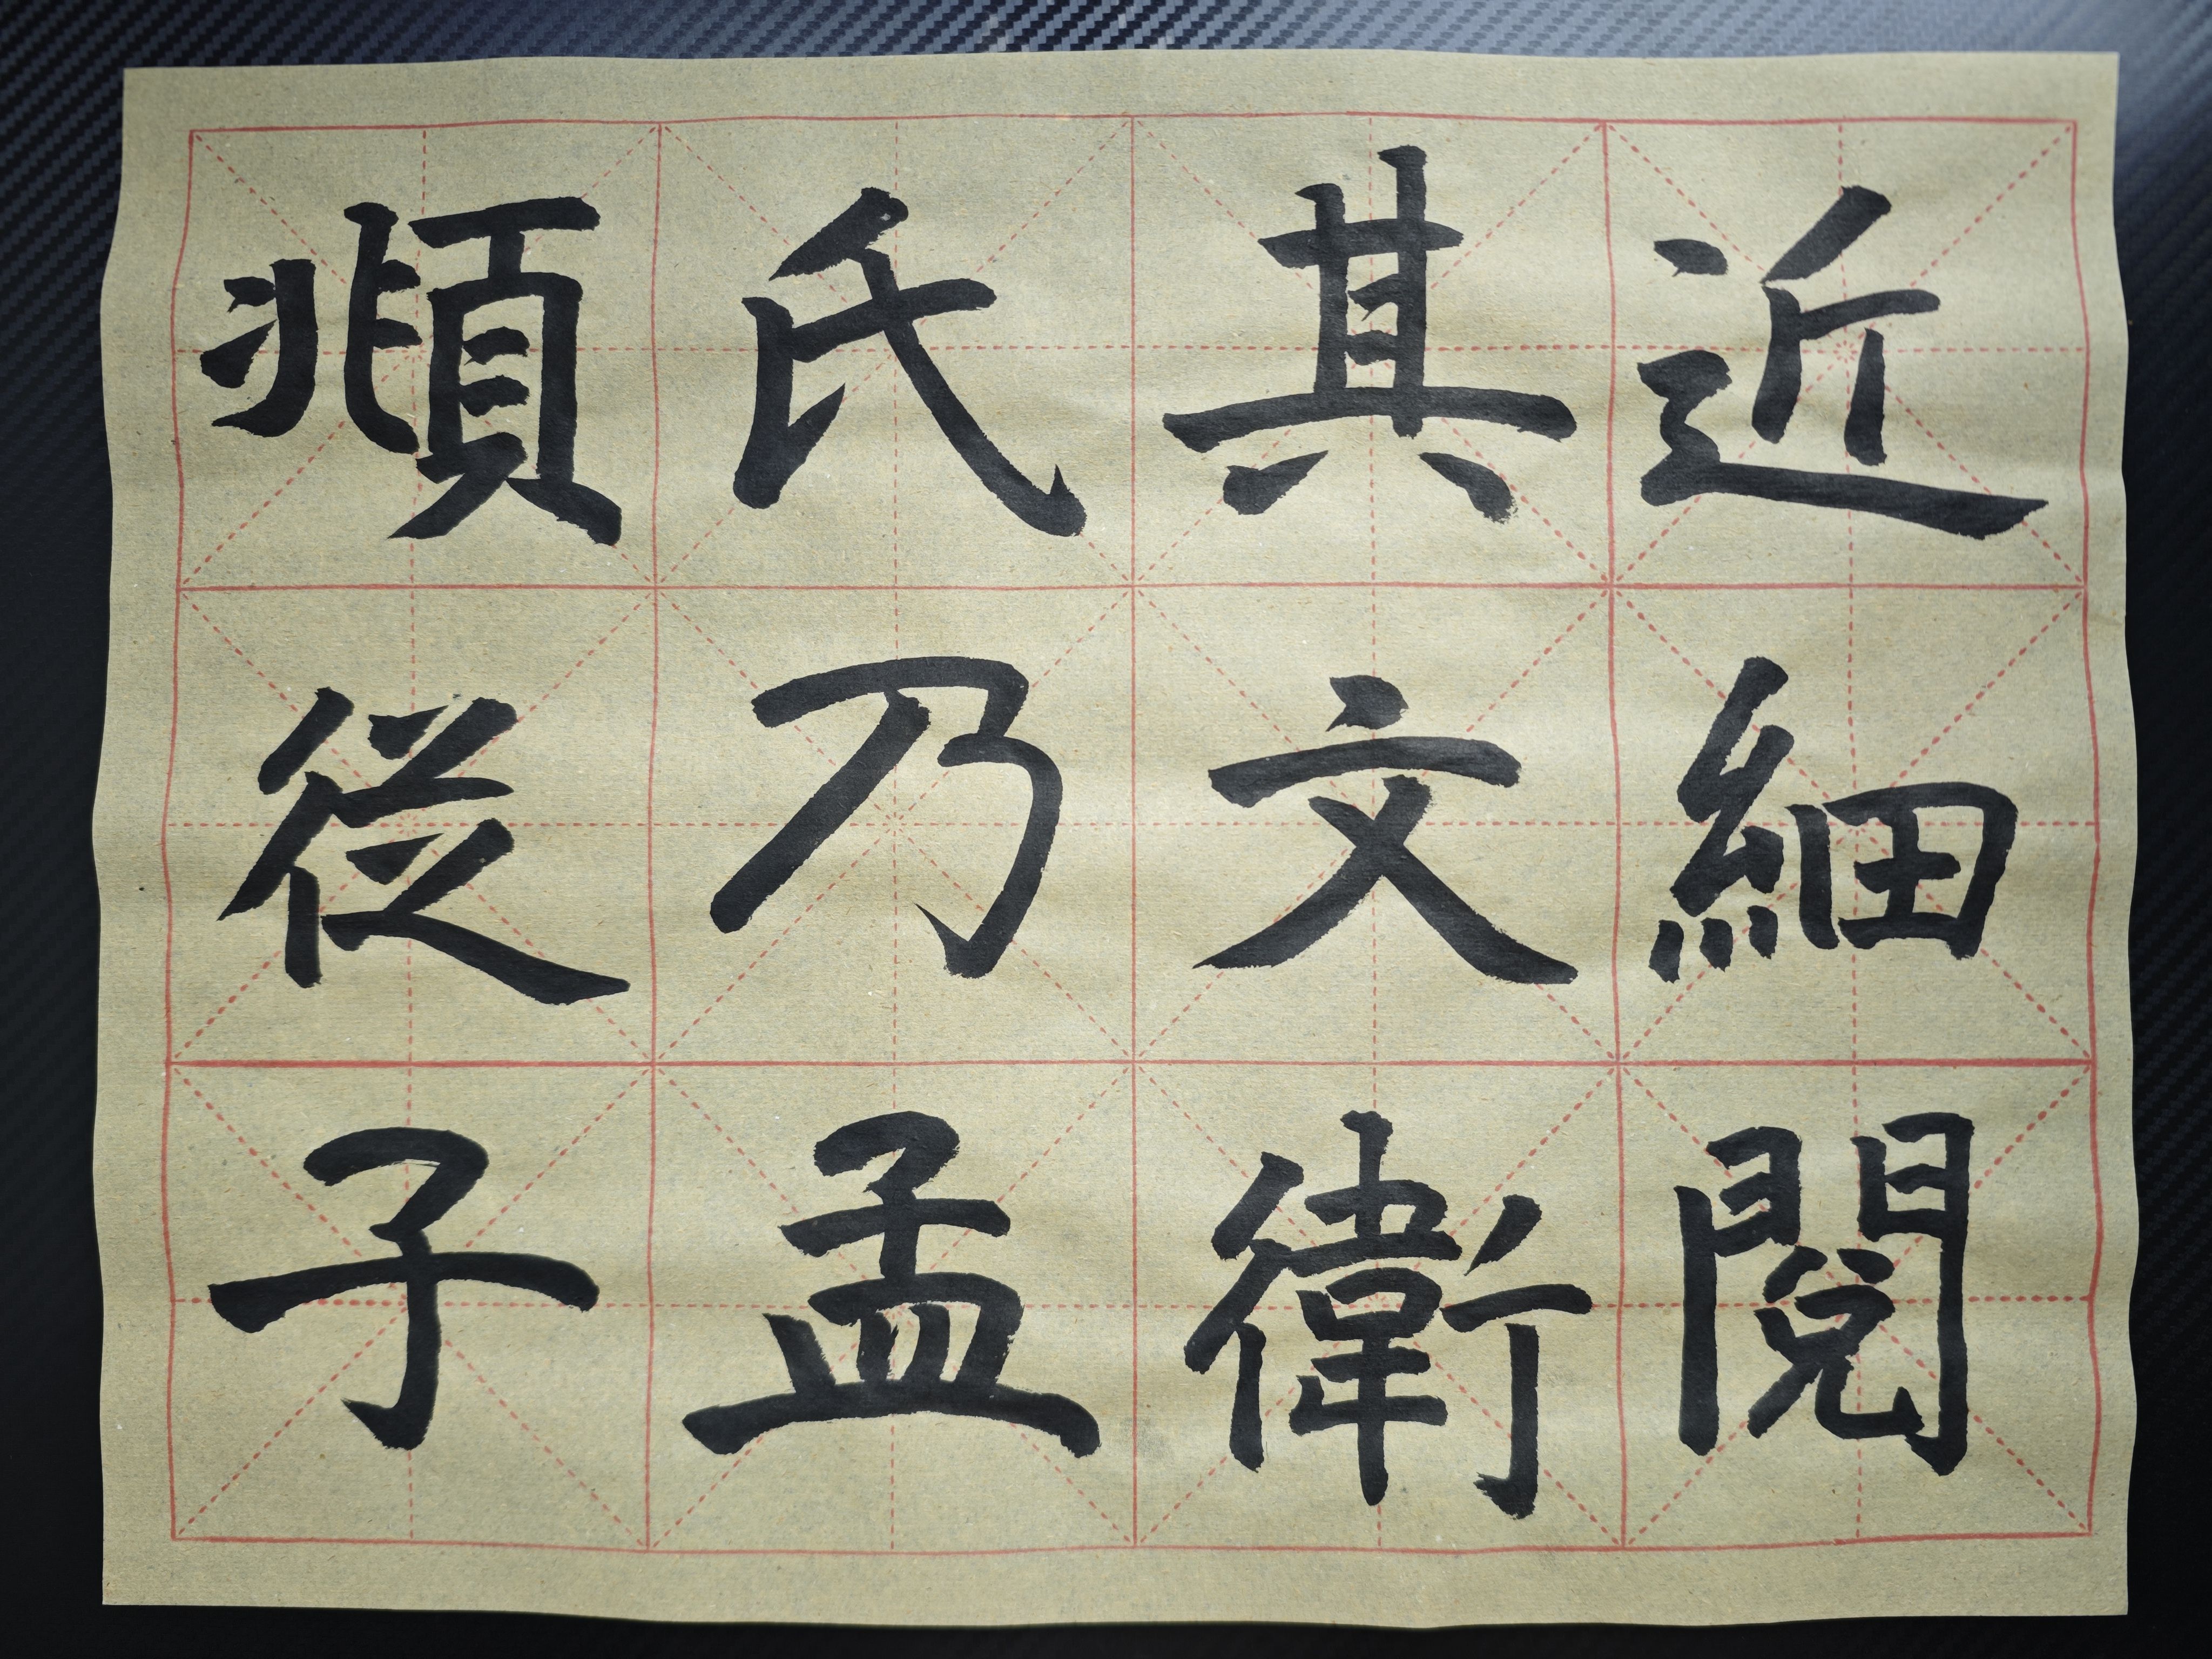 近細閱
其文衛
氏乃孟
頫從子